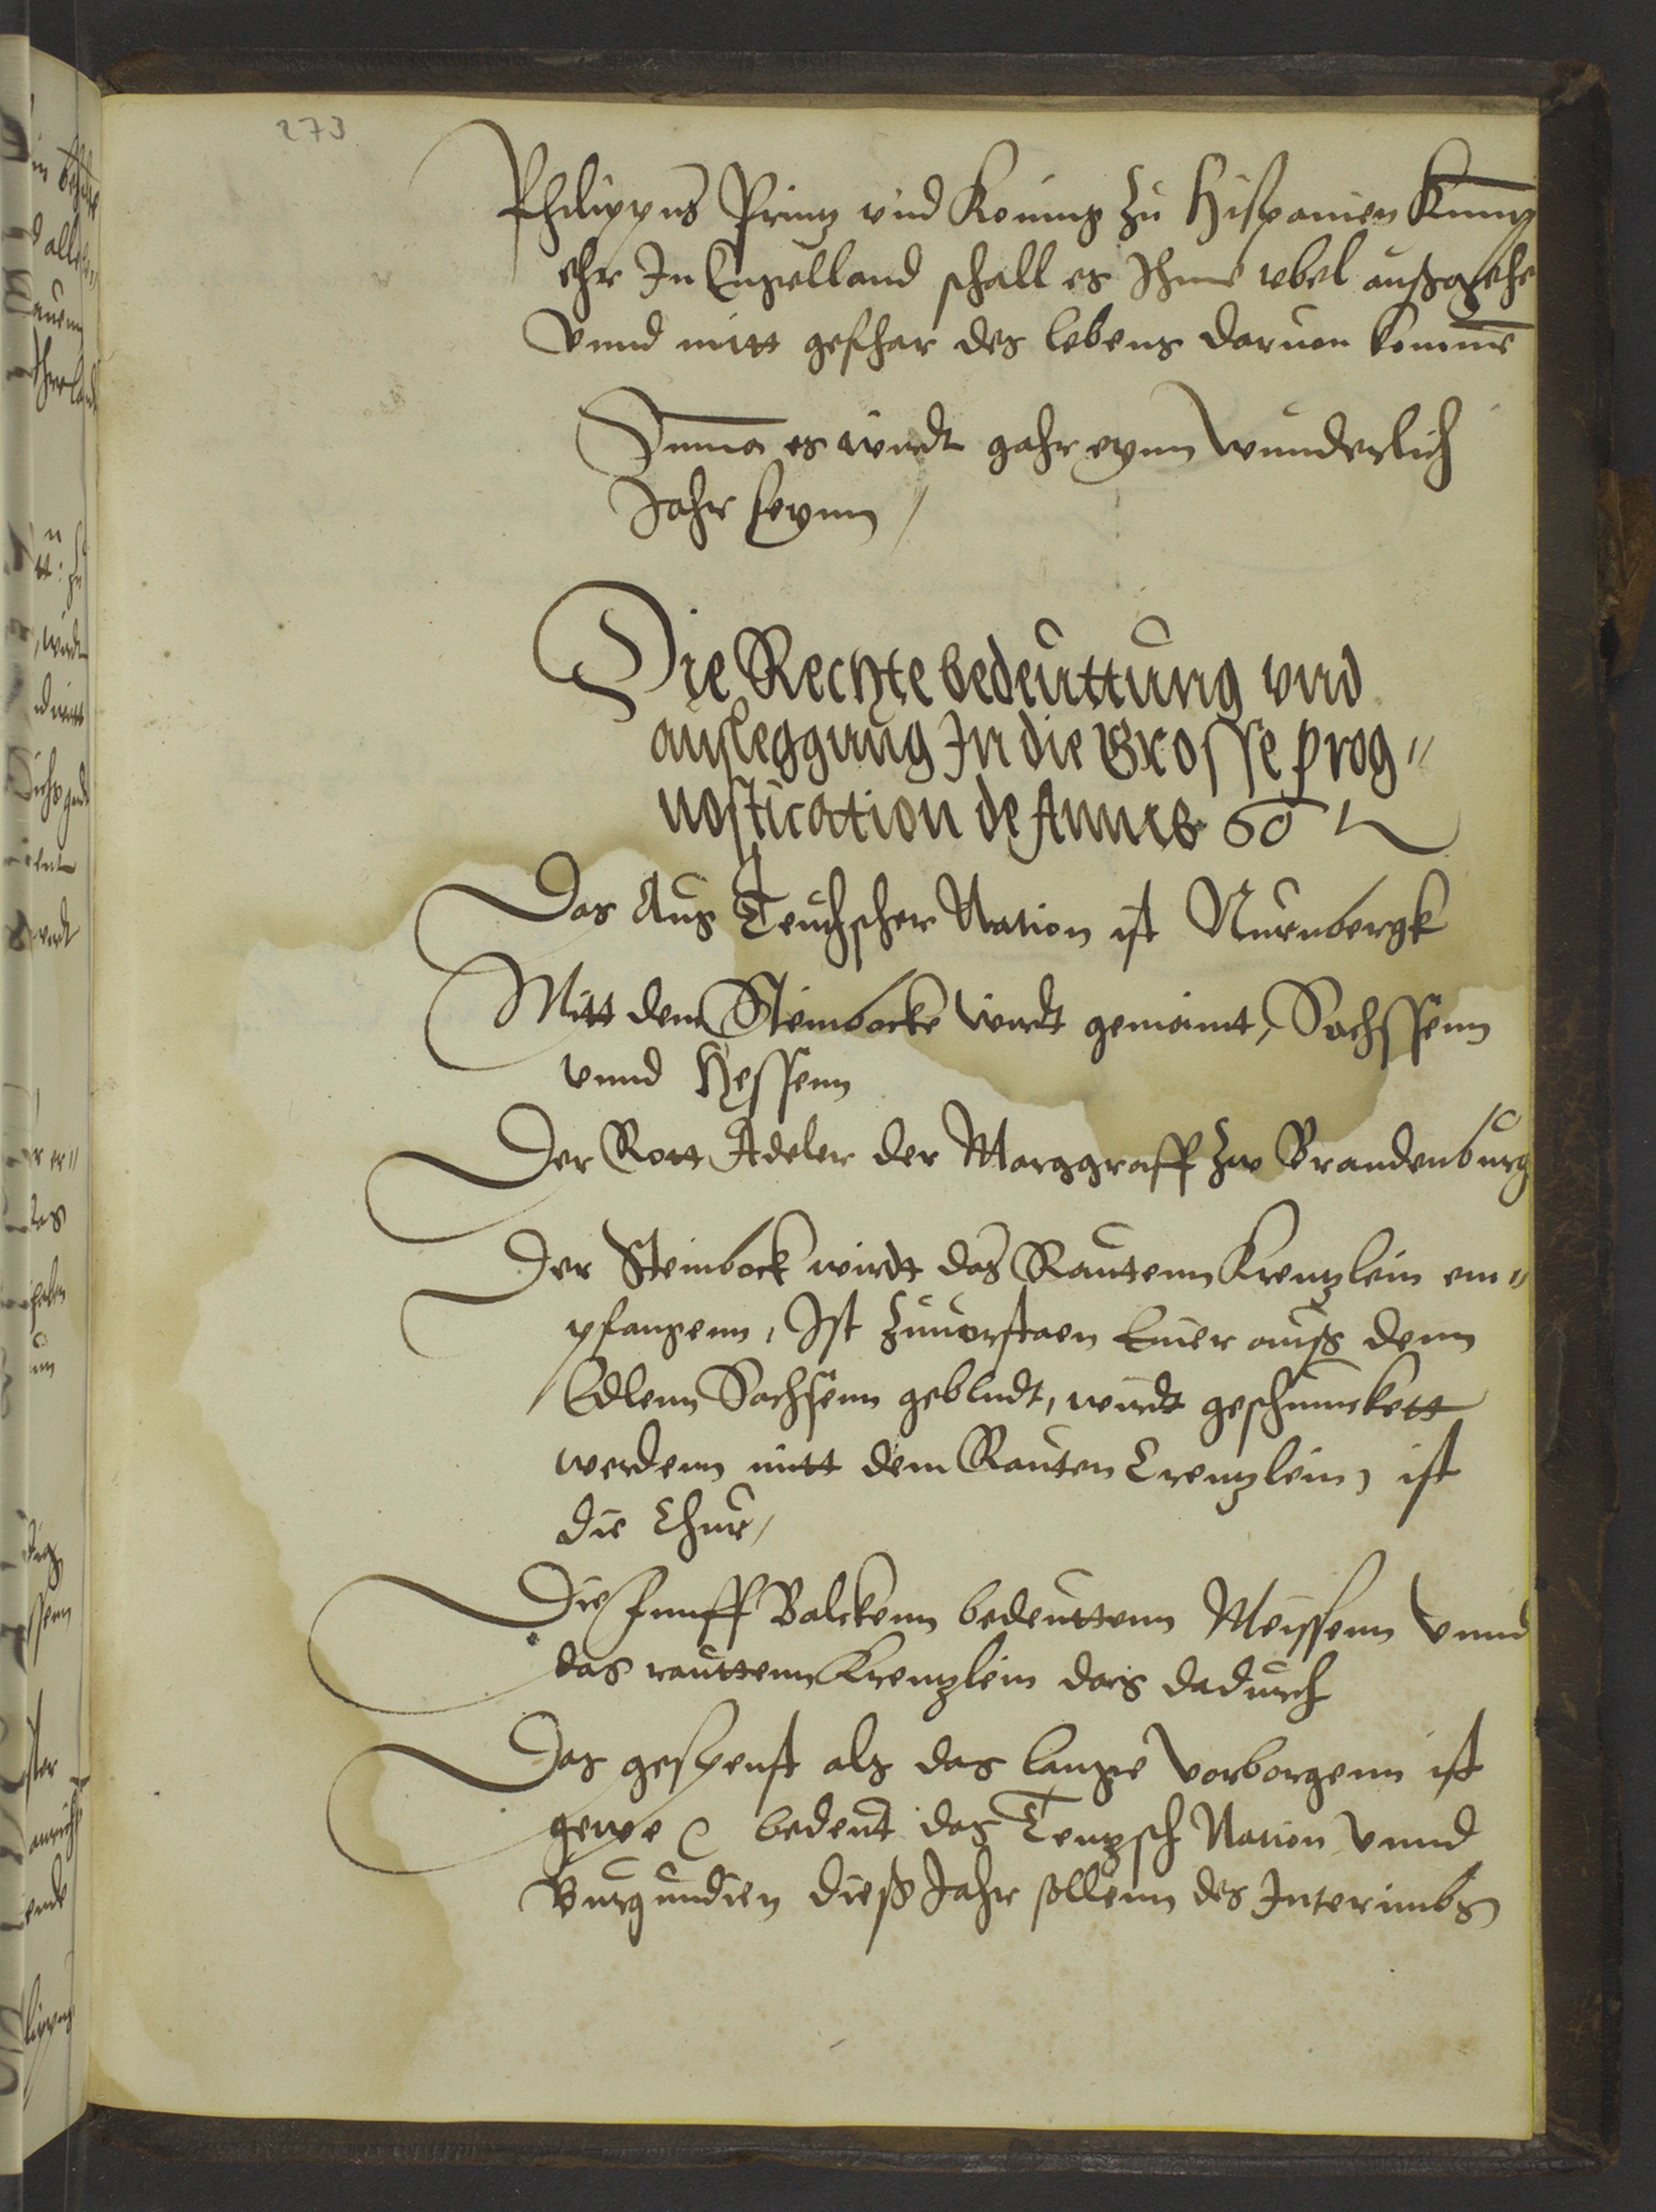 273
Philippus Prinz vnd Koning zu Hispanien Kumpt
ehr In Engelland schall es Ihme vbel außgehe
Vnnd mitt gefhar des lebens daruon komme
Summa es wirdt gahr eynn wunderlich
Jahr seynn /
Die Rechte bedeuttung vnd
ausleggung In die Grosse prog"
nostication de Annis 60
Das Aug Teuchscher Nation ist Nurnbergk
Mitt dem Steinbocke wirdt gemeint, Sachssenn
vnnd Hessenn
Der Rott Adeler der Marggraff zw Brandenburg
Der Steinbock wirdt das Rautenn Krenzlein em"
pfangenn, Ist zuuorstaen Einer auß denn
Edlenn Sachsenn gebludt, wirdt geschmuckett
werdenn mitt dem Rauten Crenzlein, ist
die Chur,
Die funff Balckenn bedeuttenn Meissenn Vnnd
das rauttenn Krenzlein dors dadurch
Das gespenst als das lange vorborgenn ist
gewe bedeut das Teuzsch Nation vnnd
Burgundien dieß Jahr sollenn des Interimbs